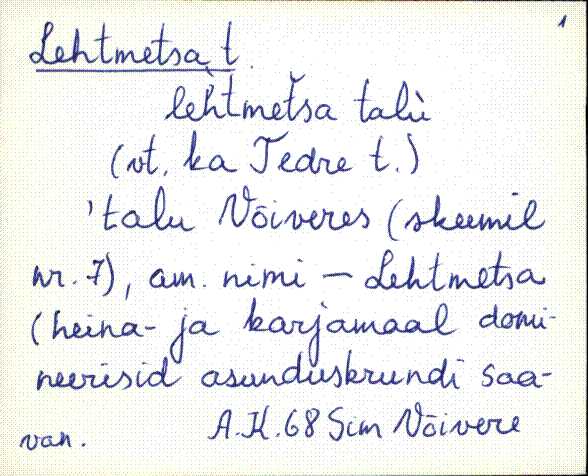 1
Lehtmetsa t.
lèhtmetša talù
(vt. ka Tedre t.)
'talu Võiveres (skeemil
nr. 7), am. nimi — Lehtmetsa
(heina- ja karjamaal domi-
neerisid asunduskrundi saa-
van. A.K. 68 Sim Võivere